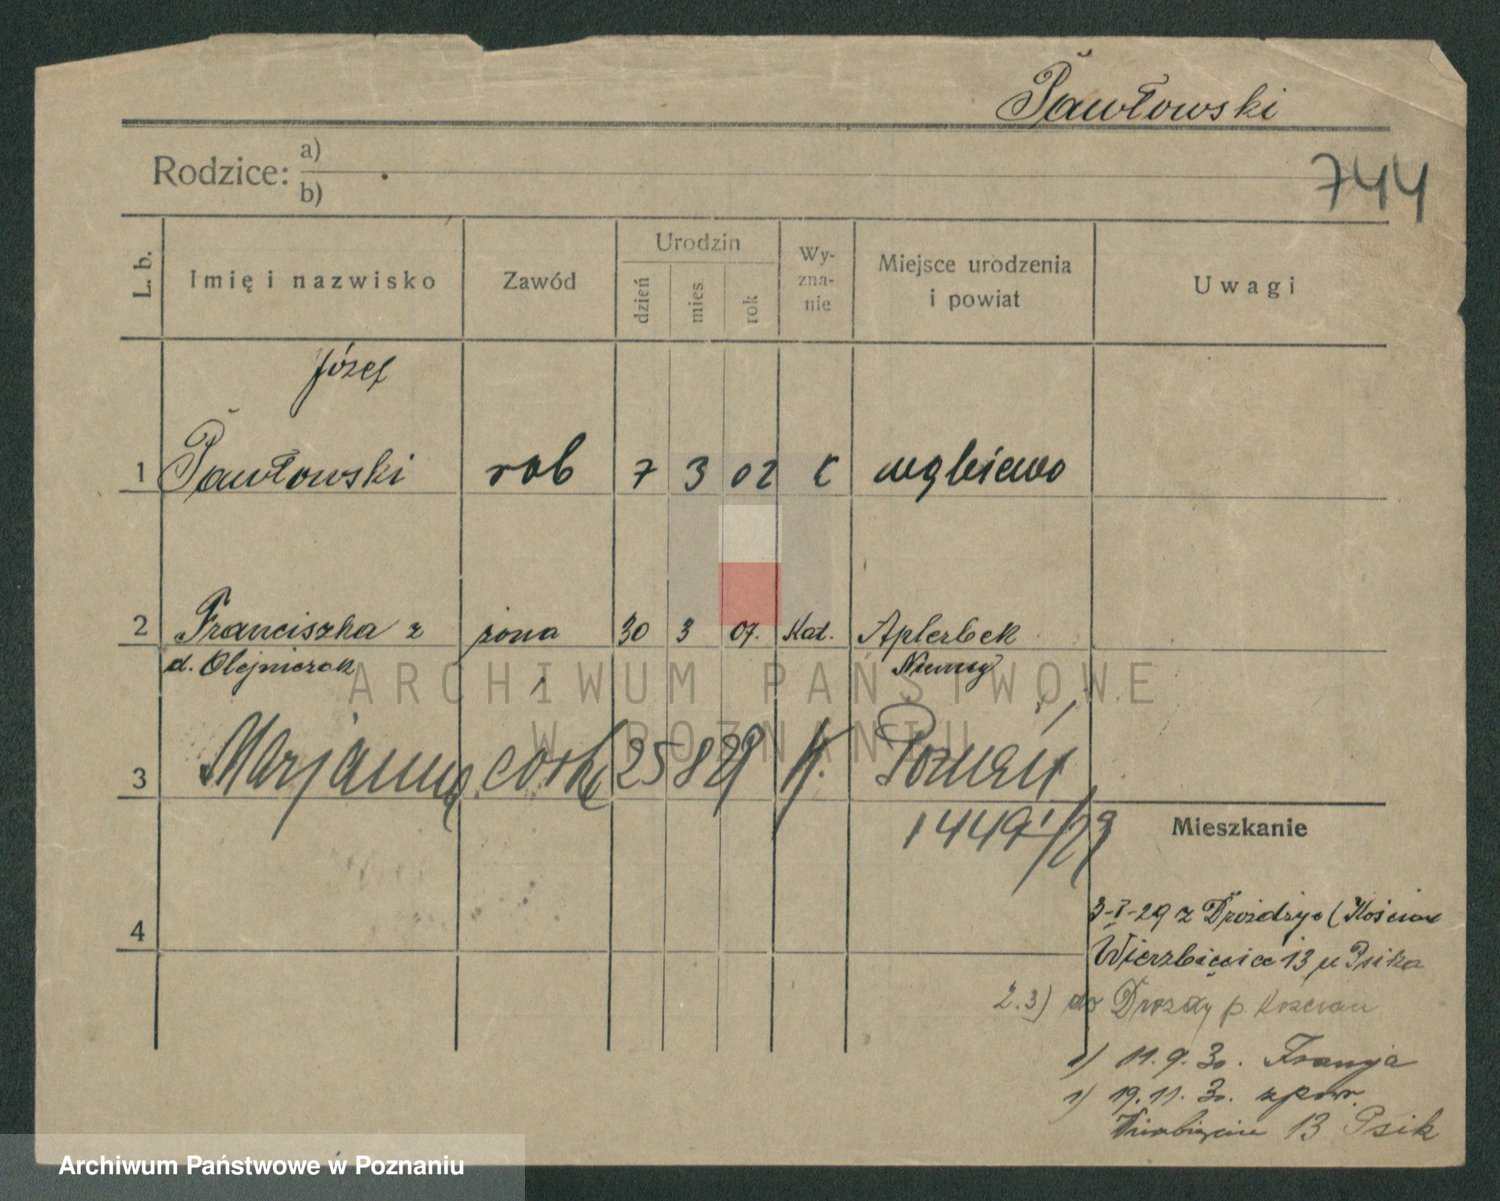 Pawłowski
744
Rodzice: a)
b)
L. b.
Imię i nazwisko
Zawód
Urodzin
dzień
mies
rok
Wy-
zna-
nie
Miejsce urodzenia
i powiat
Uwagi
Józef
1 Pawłowski rob 7 3 02 k
2 Franciszka z żona 30 3 07. Kat. Aplerbek
d. Olejniczak Niemcy
3 Marjanna córka 25 8 29 K. Poznań
1449/29
Mieszkanie
4
3-I-29 z (Kościan
Wierzbięcice 13 u Psika
2.3) do Drozdy p. Kościan
1) 11.9.30. Francja
1) 19.11.30. zpow.
Wierzbięcice 13 Psik
ARCHIWUM PAŃSTWOWE
W POZNANIU
Archiwum Państwowe w Poznaniu